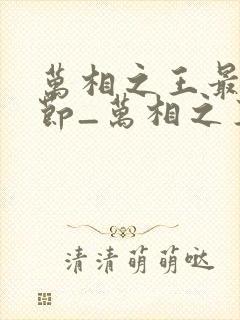 萬相之王最
節_萬相之
清清萌萌哒